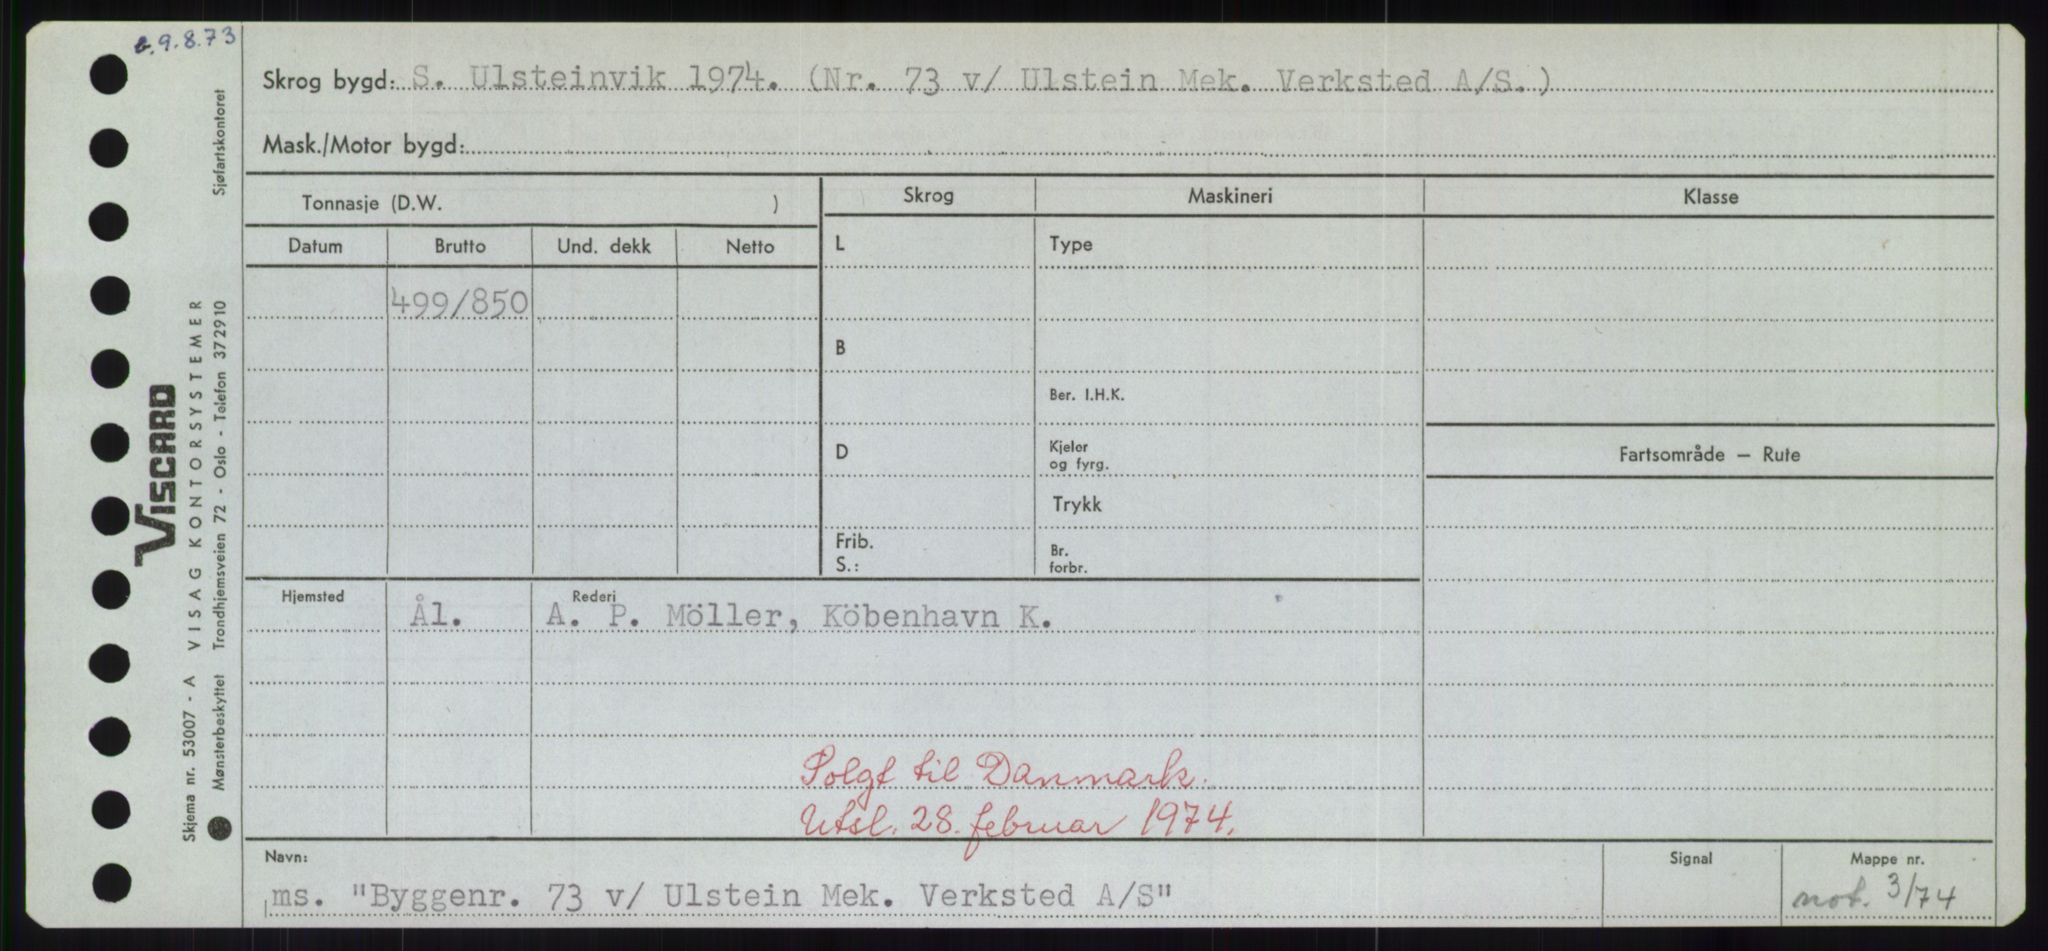 b.9.8.73
Skrog bygd: S. Ulsteinvik 1974. (Nr. 73 v/ Ulstein Mek. Verksted A/S.)
Mask./Motor bygd:
Tonnasje (D.W. )
Skrog
Maskineri
Klasse
Datum
Brutto
Und. dekk
Netto
L
Type
499/850
B
Ber. I.H.K.
D
Kjeler
og fyrg.
Fartsområde — Rute
Trykk
Frib.
S.:
Br.
forbr.
Hjemsted
Rederi
Ål.
A. P. Möller, Köbenhavn K.
Solgt til Danmark.
Utsl. 28. februar 1974.
Navn:
Signal
Mappe nr.
ms. "Byggenr. 73 v/ Ulstein Mek. Verksted A/S"
not. 3/74
VISCARD
Skjema nr. 53007 - A VISAG KONTORSYSTEMER
Mønsterbeskyttet Trondhjemsveien 72 - Oslo - Telefon 372910 Sjøfartskontoret